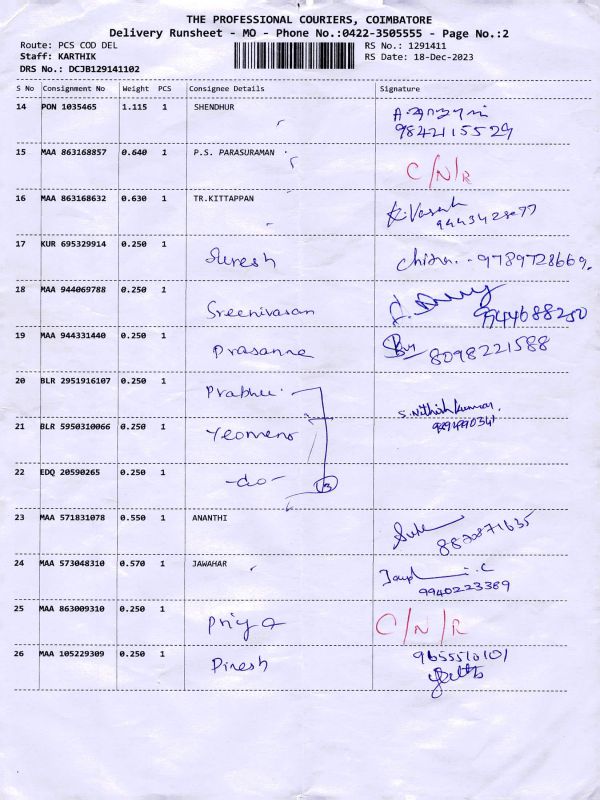 THE PROFESSIONAL COURIERS, COIMBATORE
Delivery Runsheet - MO - Phone No.:0422-3505555 - Page No.:2
Route: PCS COD DEL
Staff: KARTHIK
DRS No.: DCJB129141102
RS No.: 1291411
RS Date: 18-Dec-2023
S No Consignment No Weight PCS Consignee Details Signature
14 PON 1035465 1.115 1 SHENDHUR
9842115529
15 MAA 863168857 0.640 1 P.S. PARASURAMAN C/N/R
16 MAA 863168632 0.630 1 TR.KITTAPPAN
9443423077
17 KUR 695329914 0.250 1 Suresh Chitra.. 9789728669.
18 MAA 944069788 0.250 1 Sreenivasan
9944688250
19 MAA 944331440 0.250 1 Prasanna 8098221588
20 BLR 2951916107 0.250 1 Prabhu S. Nithish kumar.
21 BLR 5950310066 0.250 1 Yeomens
22 EDQ 20590265 0.250 1 -do- 3
23 MAA 571831078 0.550 1 ANANTHI
8870871635
24 MAA 573048310 0.570 1 JAWAHAR
9940223389
25 MAA 863009310 0.250 1 Priya C/N/R
26 MAA 105229309 0.250 1 Dinesh 9655510101